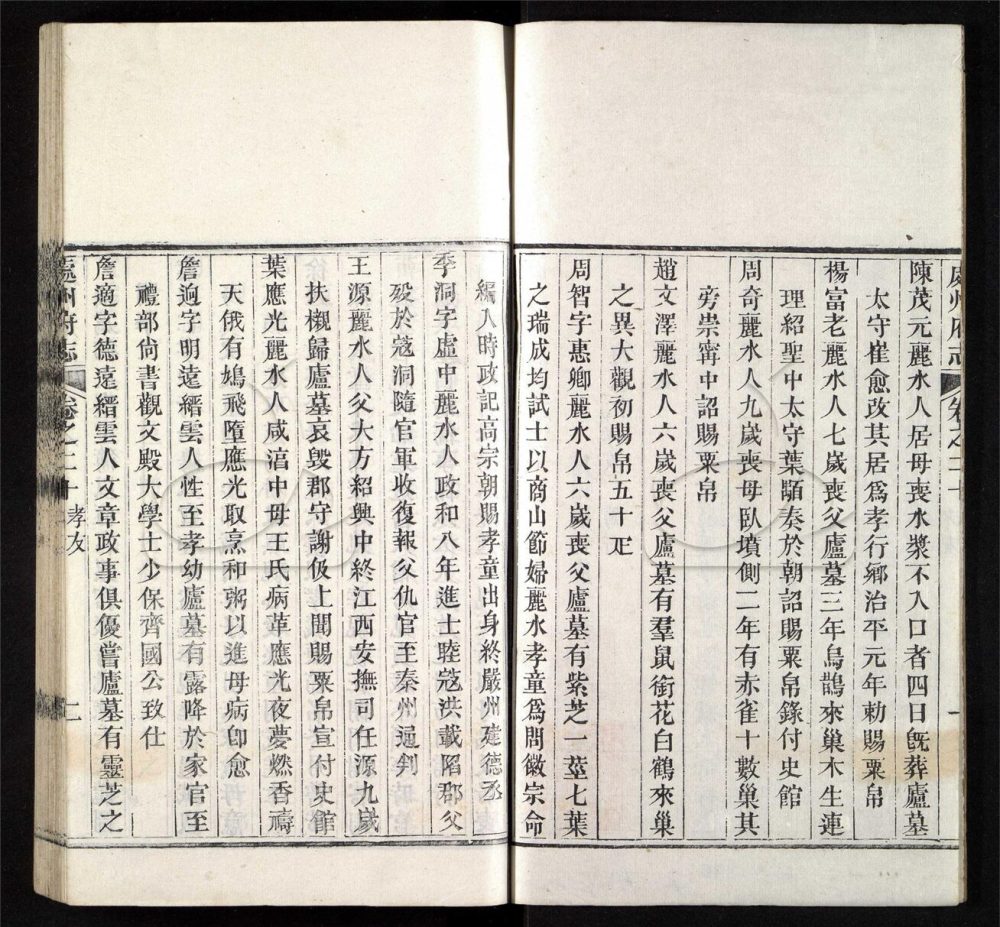 處州府志 卷之二十
陳茂元麗水人居母喪水漿不入口者四日旣葬廬墓
太守崔愈改其居爲孝行鄉治平元年勅賜粟帛
楊富老麗水人七歲喪父廬墓三年烏鵲來巢木生連
理紹聖中太守葉䪼奏於朝詔賜粟帛錄付史館
周奇麗水人九歲喪母臥墳側二年有赤雀十數巢其
旁崇寧中詔賜粟帛
趙文澤麗水人六歲喪父廬墓有羣鼠銜花白鶴來巢
之異大觀初賜帛五十疋
周智字惠卿麗水人六歲喪父廬墓有紫芝一莖七葉
之瑞成均試士以商山節婦麗水孝童爲問徽宗命
編入時政記高宗朝賜孝童出身終嚴州建德丞
季洞字虛中麗水人政和八年進士睦寇洪載陷郡父
歿於寇洞隨官軍收復報父仇官至秦州通判
王源麗水人父大方紹興中終江西安撫司任源九歲
扶櫬歸廬墓哀毀郡守謝伋上聞賜粟帛宣付史館
葉應光麗水人咸淳中母王氏病革應光夜夢燃香禱
天俄有鳩飛墮應光取烹和粥以進母病卽愈
詹迥字明遠縉雲人性至孝幼廬墓有露降於家官至
禮部尙書觀文殿大學士少保齊國公致仕
詹適字德遠縉雲人文章政事俱優嘗廬墓有靈芝之
處州府志 卷之二十 孝友 七